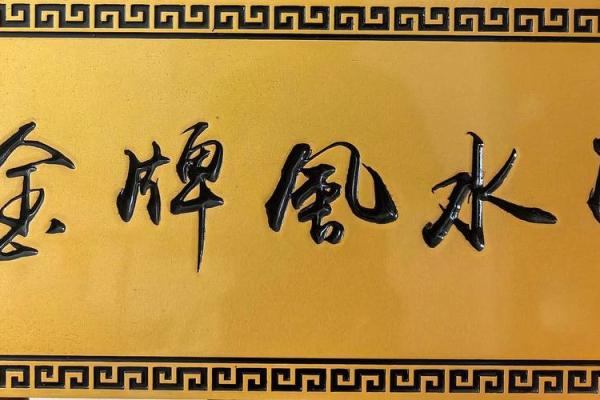 金牌風水